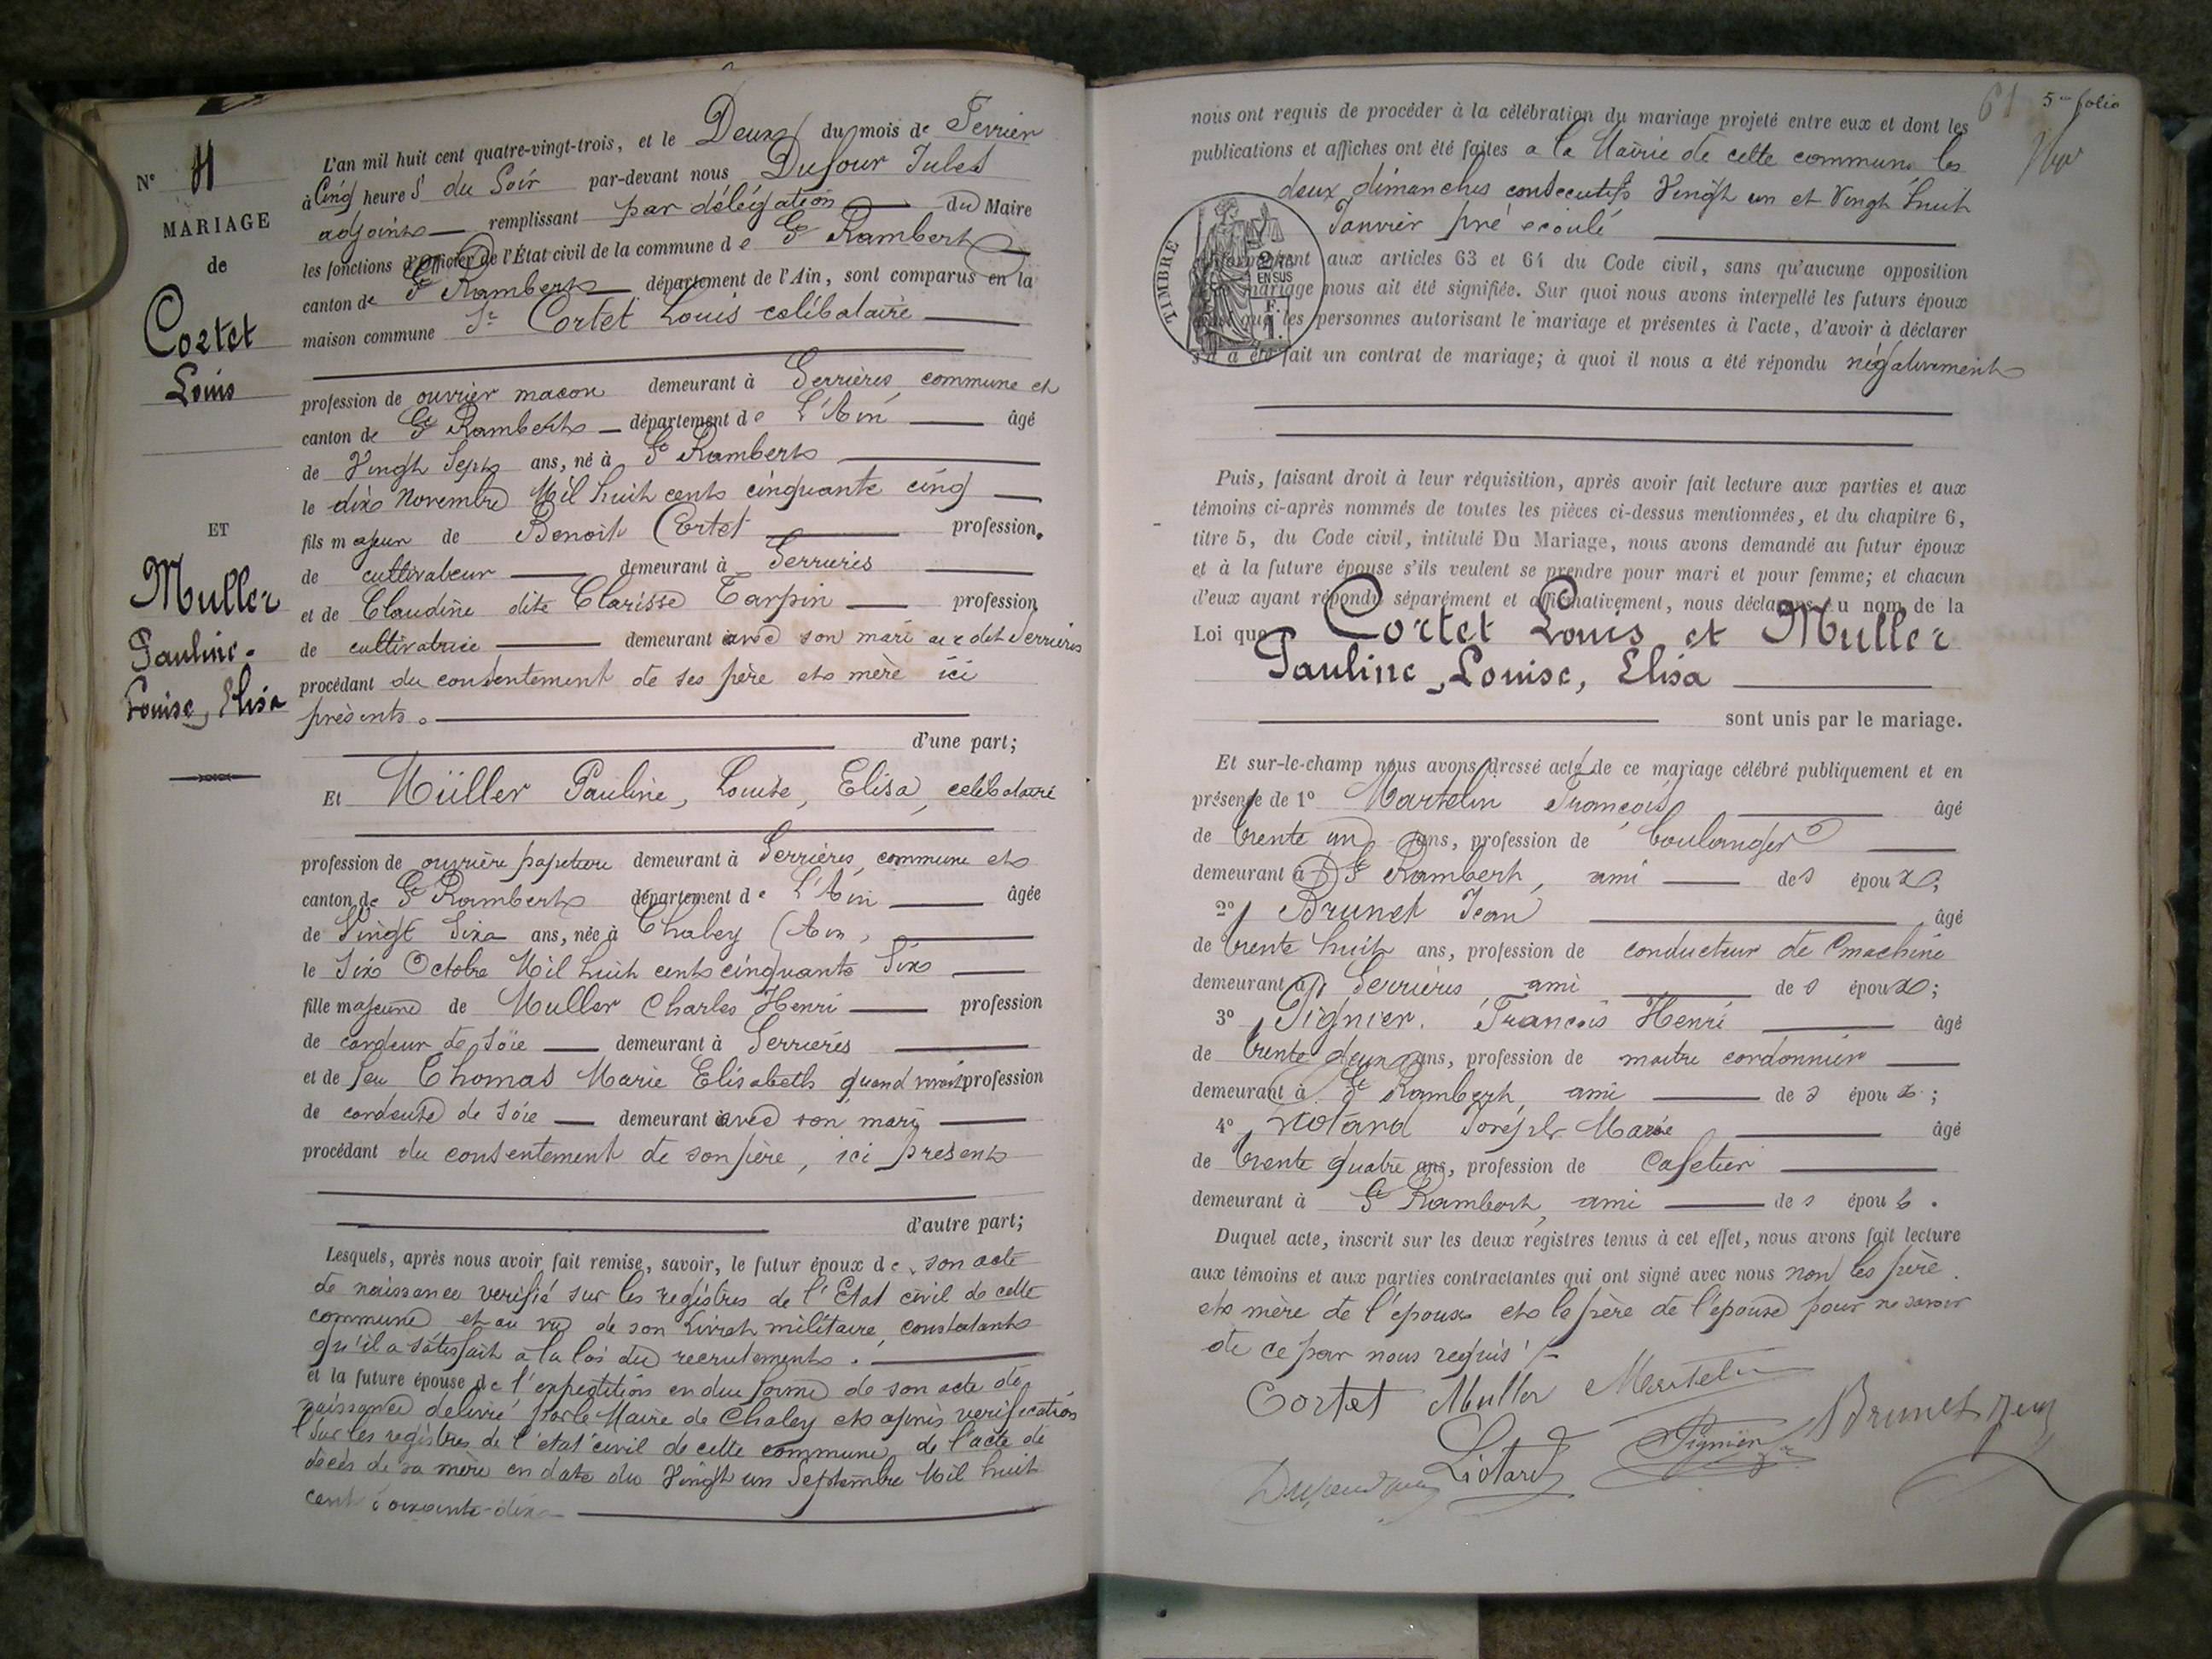 N° 4
MARIAGE
de
Cortet
Louis
ET
Muller
Pauline.
Louise, Elisa
L'an mil huit cent quatre-vingt-trois, et le Deux du mois de Fevrier
à Cinq heure s du Soir par-devant nous Dufour Jules
adjoint remplissant par délégation du Maire
les fonctions d'Officier de l'État civil de la commune de St Rambert
canton de St Rambert département de l'Ain, sont comparus en la
maison commune Sr Cortet Louis celibataire
profession de ouvrier macon demeurant à Serrières, commune et
canton de St Rambert département de L'Ain âgé
de Vingt Sept ans, né à St Rambert
le dix Novembre Mil huit cent cinquante cinq
fils majeur de Benoit Cortet profession
de cultivateur demeurant à Serrieres
et de Claudine dite Clarisse Tarpin profession
de cultivatrice demeurant avec son mari au dit Serrieres
procédant du consentement de ses père et mère ici
présents.
d'une part;
Et Müller Pauline, Louise, Elisa, celibataire
profession de ouvrière papetiere demeurant à Serrières, commune et
canton de St Rambert département de L'Ain âgée
de Vingt Six ans, née à Chaley (Ain,
le Six Octobre Mil huit cent cinquante Six
fille majeure de Muller Charles Henri profession
de cardeur de Soie demeurant à Serrieres
et de feu Thomas Marie Elisabeth quand vivait profession
de cardeuse de Soie demeurant avec son mari
procédant du consentement de son père, ici present
d'autre part;
Lesquels, après nous avoir fait remise, savoir, le futur époux de son acte
de naissance verifié sur les registres de l'Etat civil de cette
commune et au vu de son Livret militaire, constatant
qu'il a satisfait à la loi du recrutement.
et la future épouse de l'expedition en due forme de son acte de
naissance delivré par le Maire de Chaley et apres verification
sur les registres de l'etat civil de cette commune, de l'acte de
décés de sa mère en date du Vingt un Septembre Mil huit
cent soixante-dix
61 5me folio
nous ont requis de procéder à la célébration du mariage projeté entre eux et dont les
publications et affiches ont été faites a la Mairie de cette commune les
deux dimanches consecutifs Vingt un et Vingt huit
Janvier pré ecoulé
TIMBRE
2/10
EN SUS
aux articles 63 et 64 du Code civil, sans qu'aucune opposition
mariage nous ait été signifiée. Sur quoi nous avons interpellé les futurs époux
que les personnes autorisant le mariage et présentes à l'acte, d'avoir à déclarer
s'il a été fait un contrat de mariage; à quoi il nous a été répondu négativement
Puis, faisant droit à leur réquisition, après avoir fait lecture aux parties et aux
témoins ci-après nommés de toutes les pièces ci-dessus mentionnées, et du chapitre 6,
titre 5, du Code civil, intitulé Du Mariage, nous avons demandé au futur époux
et à la future épouse s'ils veulent se prendre pour mari et pour femme; et chacun
d'eux ayant répondu séparément et affirmativement, nous déclarons au nom de la
Loi que Cortet Louis et Muller
Pauline, Louise, Elisa
sont unis par le mariage.
Et sur-le-champ nous avons dressé acte de ce mariage célébré publiquement et en
présence de 1° Martelin François âgé
de trente un ans, profession de boulanger
demeurant à St Rambert, ami des époux;
2° Brunet Jean âgé
de trente huit ans, profession de conducteur de machine
demeurant à Serrieres ami des époux;
3° Pignier François Henri âgé
de trente deux ans, profession de maitre cordonnier
demeurant à St Rambert, ami des époux;
4° Liotard Joseph Marie âgé
de trente quatre ans, profession de Cafetier
demeurant à St Rambert, ami des époux.
Duquel acte, inscrit sur les deux registres tenus à cet effet, nous avons fait lecture
aux témoins et aux parties contractantes qui ont signé avec nous non les père
et mère de l'époux et le père de l'épouse pour ne savoir
de ce par nous requis
Cortet Muller Martelin
Liotard Pignier Brunet Jean